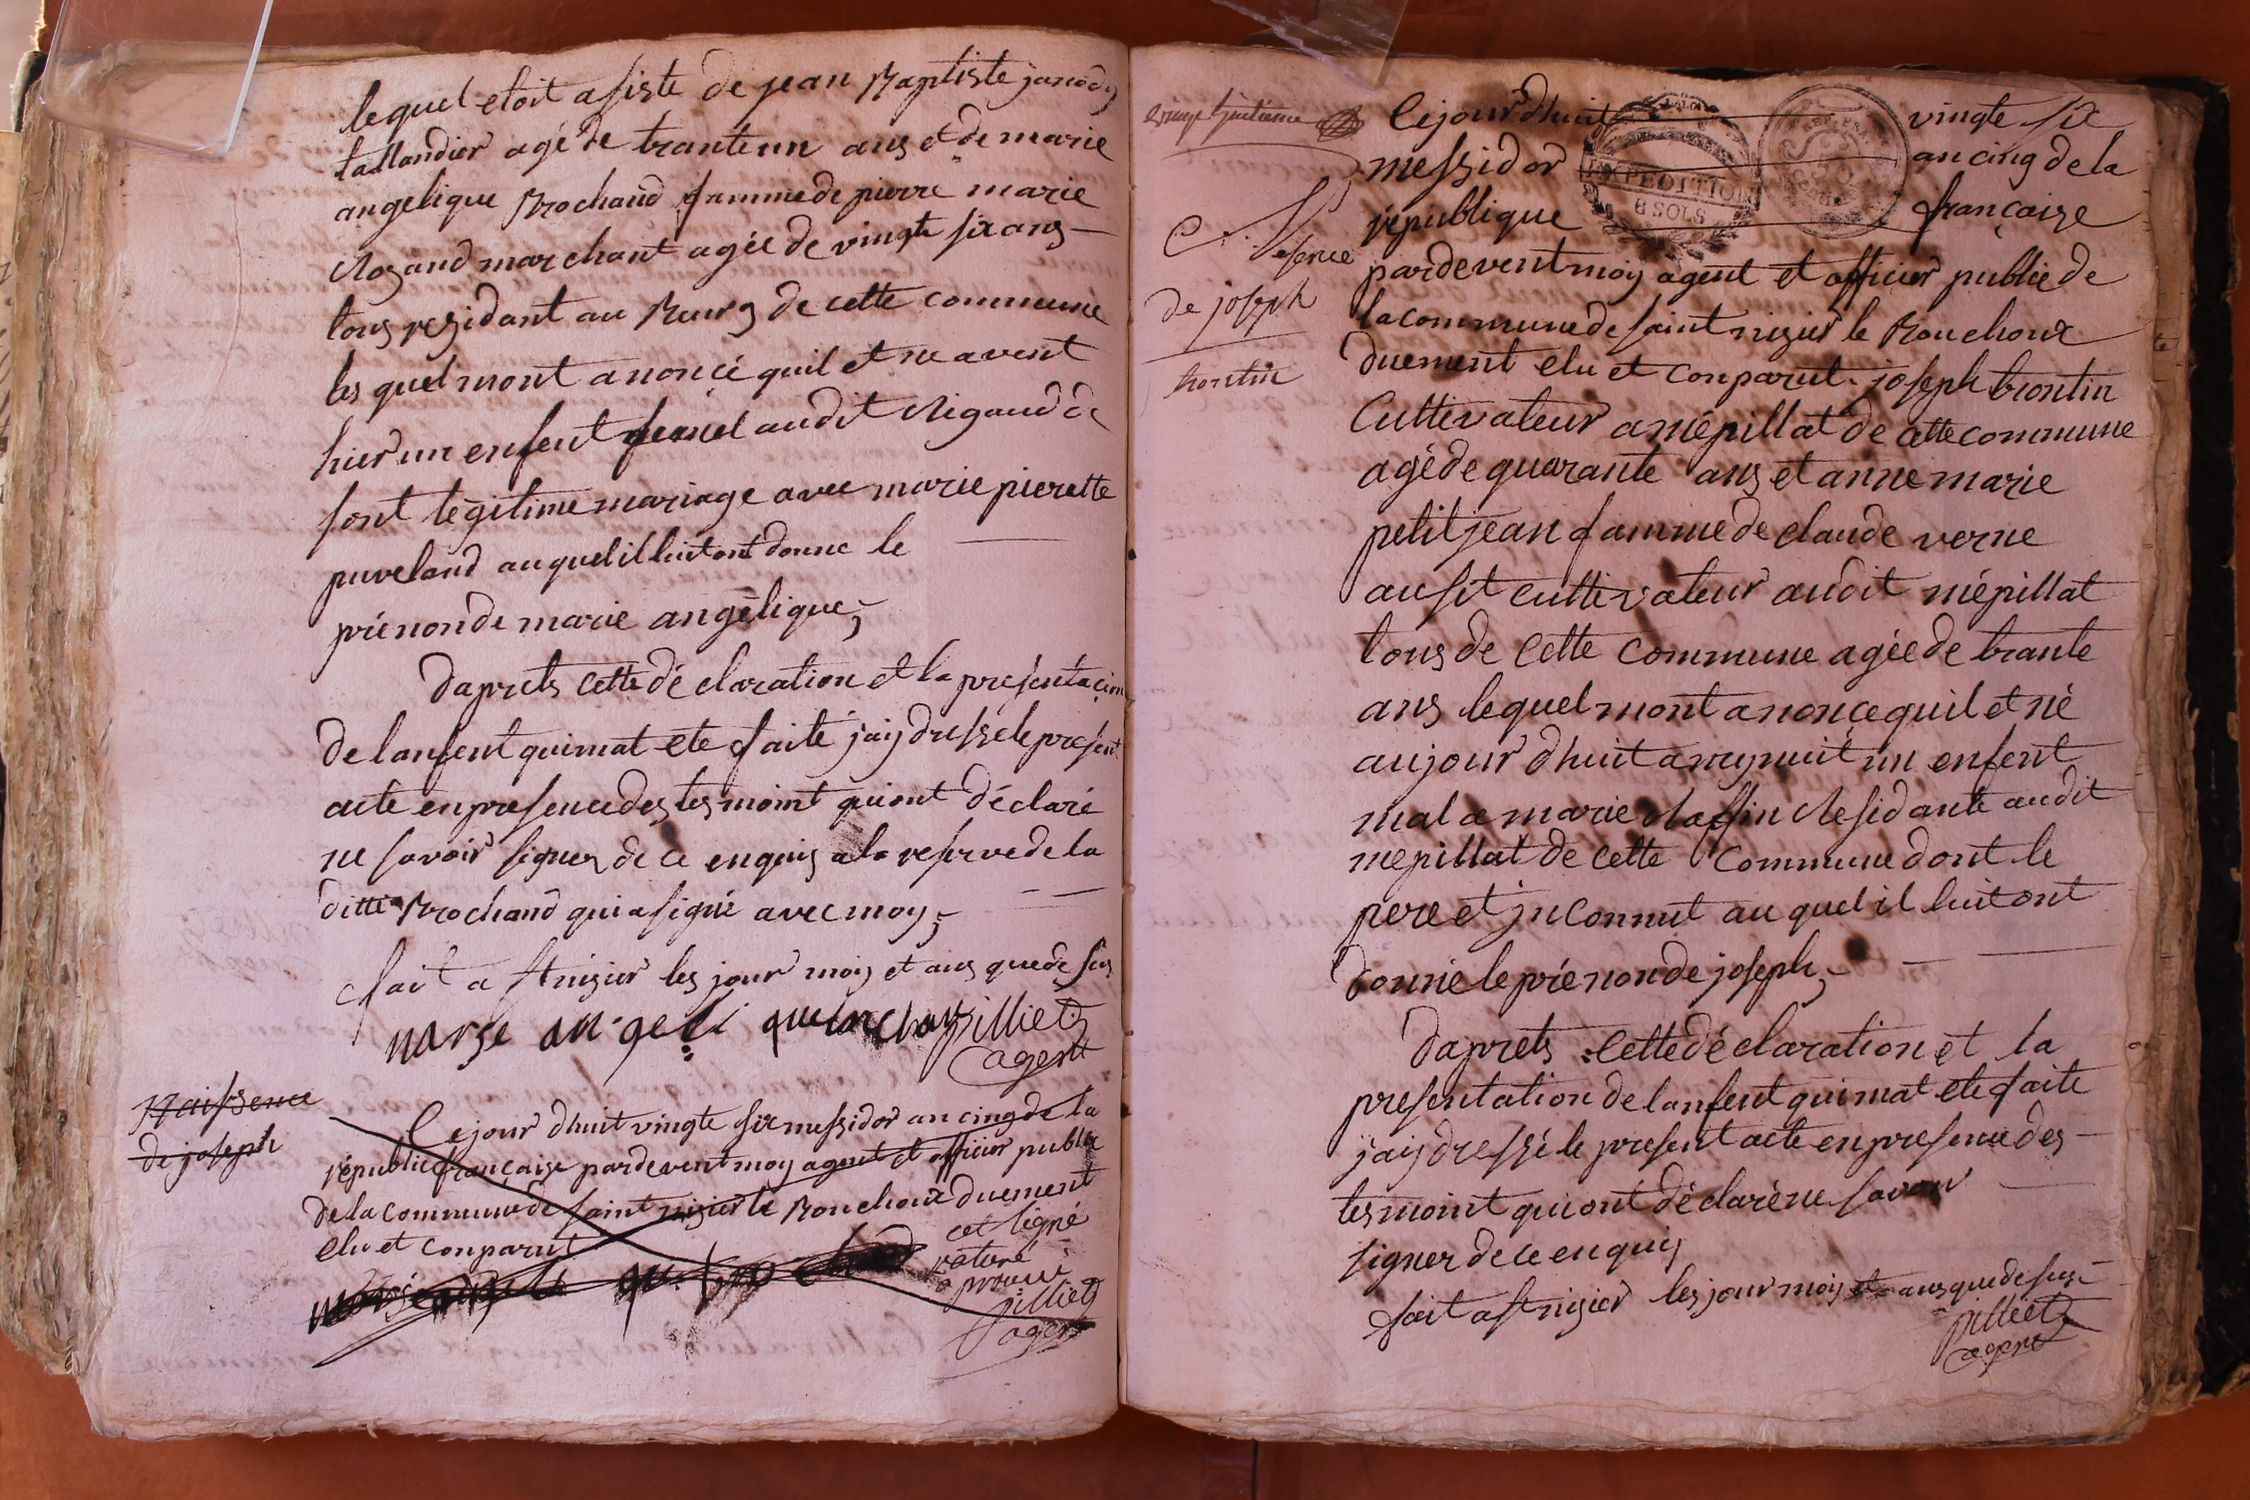 lequel etoit asiste de jean Baptiste janody
tallandier agé de trante un ans et de marie
angelique Brochand famme de pierre marie
Rozand marchant agée de vingt six ans
tous rezidant au Bourg de cette commune
les quel mont anoncé quil et ne avent
hier un enfent femel audit Rigaud de
sont légitime mariage avec marie pierette
puveland auquel il luit ont donne le
prénon de marie angélique,
daprets cette déclaration et la presentacion
de lanfent qui mat ete faite jaij dressé le present
acte en presence des tesmoint qui ont déclaré
ne savoir signer de ce enquis a la reserve de la
ditte Brochand qui a signé avec moy,
fait a st nizier les jour mois et ans que de sus
marie an geli que brochan pilliet
agent
Naissence
de joseph
Cejour dhuit vingte six messidor an cinq de la
républic française pardevent moy agent et officier public
de la commune de saint nizier le Bouchoux duement
elu et conparut
cet ligne
raturé
aprouvé
pilliet
agent
Cejour dhuit vingte six
messidor an cinq de la
république française
EXPEDITION
8 SOLS
pardevent moy agent et officier public de
la commune de saint nizier le Bouchoux
duement elu et conparut joseph brontin
Cultivateur a mépillat de cette commune
agé de quarante ans et anne marie
petitjean famme de claude verne
ausit cultivateur audit mépillat
tous de cette commune agée de trante
ans lequel mont anonce quil et né
aujour dhuit a my nuit un enfent
mal a marie Raffin Residante audit
mepillat de cette commune dont le
pere et jnconnut au quel il luit ont
donné le prénon de joseph,
daprets cette déclaration et la
presentation de lanfent qui mat ete faite
jaij dressé le present acte en presence des
tesmoint qui ont déclaré ne savoir
signer de ce enquis
fait a st nizier les jour mois et ans que de sus
pilliet
agent
de joseph
brontin